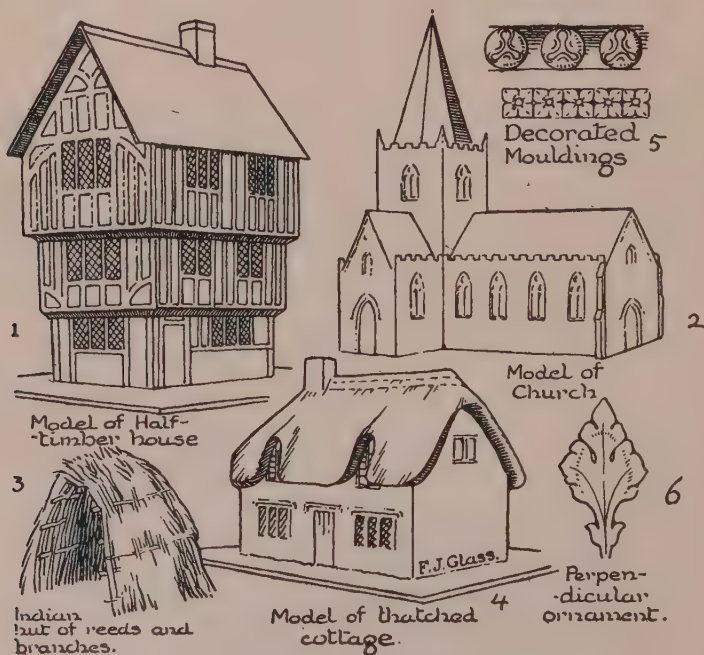 Decorated 5
Mouldings
1
2
Model of Half-
-timber house
Model of
Church
3
6
F.J.Glass.
Indian
hut of reeds and
branches.
Model of thatched 4
cottage.
Perpen-
-dicular
ornament.